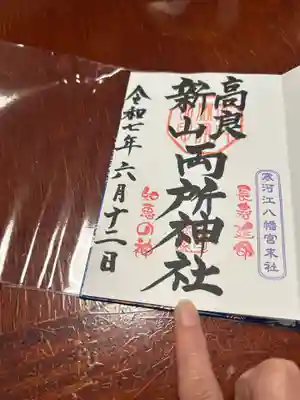 寒河江八幡宮末社
長寿延命
高良
新山両所神社
知恵の神
令和七年六月十二日